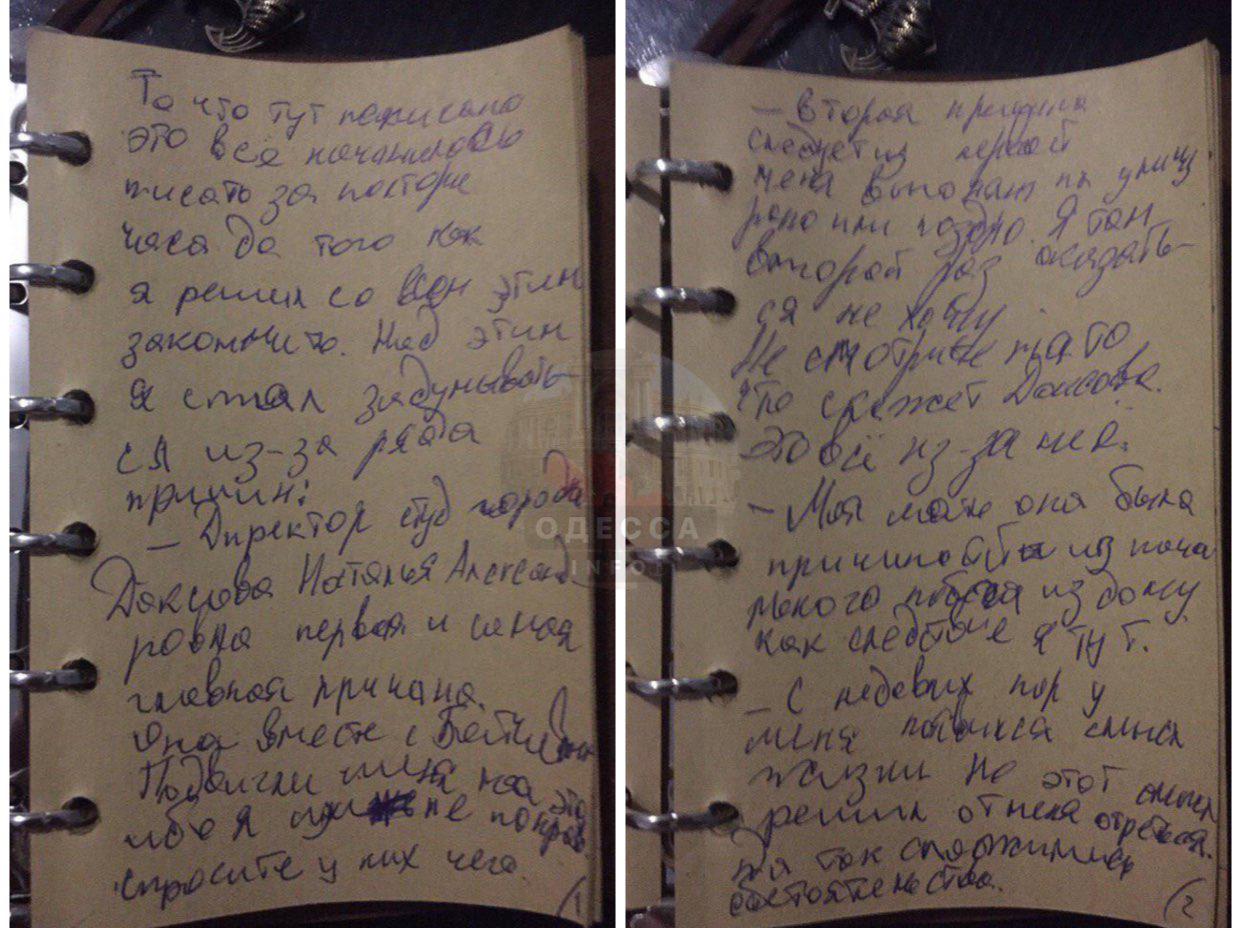 То что тут написано
это всё начиналось
писать за полтора
часа до того как
я решил со всем этим
закончить. Над этим
я стал задумывать-
ся из-за ряда
причин:
— Директор студ города
Наталья Александ
ровна первая и самая
главная причина.
Она вместе с
Подвигли меня на это
ибо я им не понрав.
спросите у них чего.
1
— Вторая причина
следует из первой
меня выгонят на улицу
рано или поздно. Я там
второй раз оказать-
ся не хочу.
Не смотрите на то
что скажет
это всё из-за неё.
— Моя мать она была
причиной из нача
моего побега из дому
как следствие я тут.
— С недавних пор у
меня появился смысл
жизни но этот смысл
решил от меня отречься.
так сложились
обстоятельства.
2
ОДЕССА
INFO